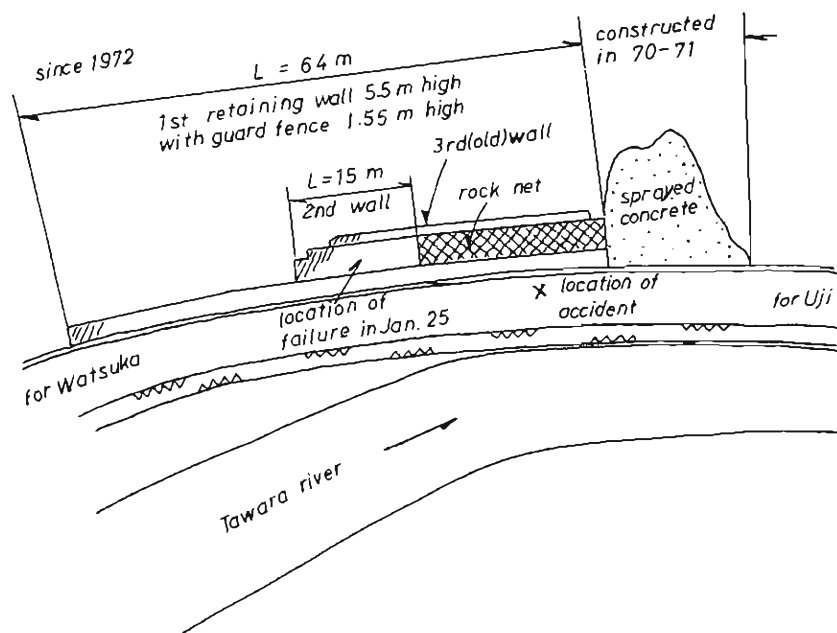 since 1972
constructed
in 70-71
L = 64 m
1st retaining wall 5.5 m high
with guard fence 1.55 m high
3rd(old)wall
L=15 m
2nd wall
rock net
sprayed
concrete
location of
failure in Jan. 25
x location of
accident
for Uji
for Watsuka
Tawara river